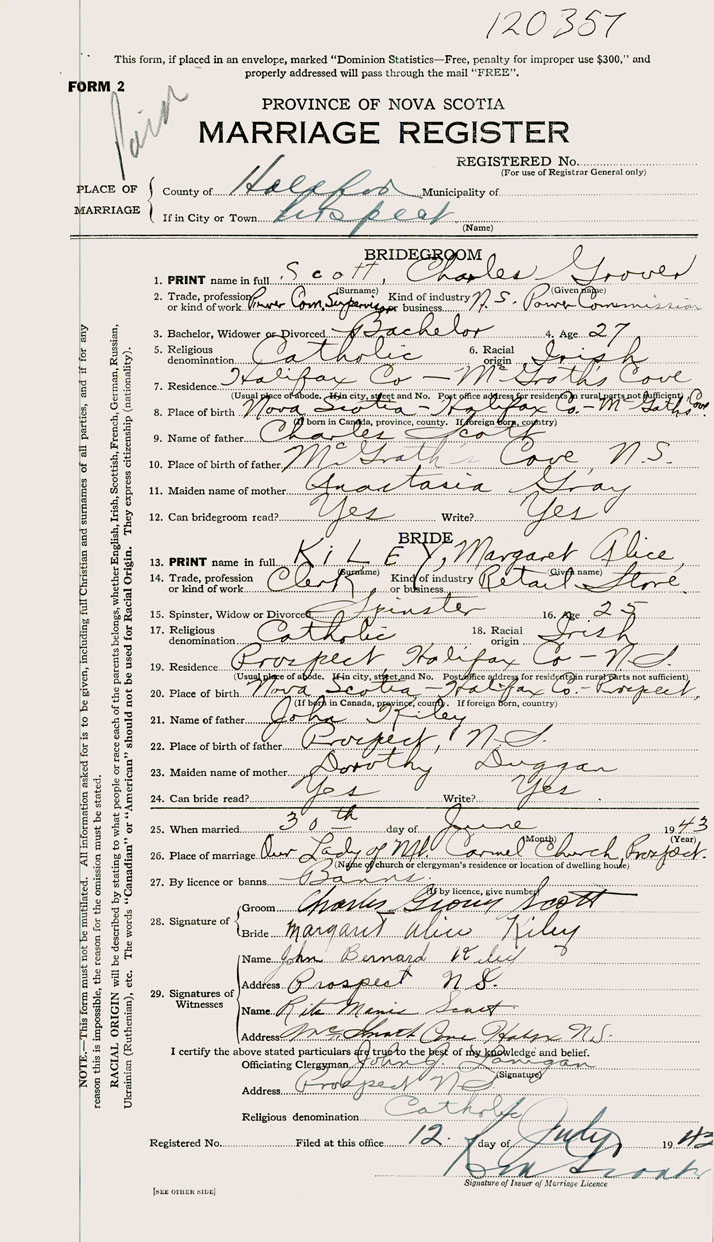 120357
This form, if placed in an envelope, marked "Dominion Statistics—Free, penalty for improper use $300," and
properly addressed will pass through the mail "FREE".
FORM 2
PROVINCE OF NOVA SCOTIA
MARRIAGE REGISTER
REGISTERED No.
(For use of Registrar General only)
PLACE OF MARRIAGE
County of Halifax Municipality of
If in City or Town Prospect
(Name)
BRIDEGROOM
1. PRINT name in full Scott, Charles Grover
(Surname) (Given name)
2. Trade, profession or kind of work Power Com. Supervisor Kind of industry or business N.S. Power Commission
3. Bachelor, Widower or Divorced Bachelor 4. Age 27
5. Religious denomination Catholic 6. Racial origin Irish
7. Residence Halifax Co — McGrath's Cove
(Usual place of abode. If in city, street and No. Post office address for residents in rural parts not sufficient)
8. Place of birth Nova Scotia — Halifax Co. — McGaths Cove
(If born in Canada, province, county. If foreign born, country)
9. Name of father Charles Scott
10. Place of birth of father McGrath's Cove, N.S.
11. Maiden name of mother Anastasia Gray
12. Can bridegroom read? Yes Write? Yes
BRIDE
13. PRINT name in full KILEY, Margaret Alice
(Surname) (Given name)
14. Trade, profession or kind of work Clerk, Kind of industry or business Retail Store.
15. Spinster, Widow or Divorced Spinster 16. Age 25
17. Religious denomination Catholic 18. Racial origin Irish
19. Residence Prospect, Halifax Co — N.S.
(Usual place of abode. If in city, street and No. Post office address for residents in rural parts not sufficient)
20. Place of birth Nova Scotia — Halifax Co. — Prospect,
(If born in Canada, province, county. If foreign born, country)
21. Name of father John Kiley
22. Place of birth of father Prospect, N.S.
23. Maiden name of mother Dorothy Duggan
24. Can bride read? Yes Write? Yes
25. When married 30th day of June 1943
(Month) (Year)
26. Place of marriage Our Lady of Mt. Carmel Church, Prospect.
(Name of church or clergyman's residence or location of dwelling house)
27. By licence or banns Banns.
(If by licence, give number)
28. Signature of
Groom Charles Scott
Bride Margaret Alice Kiley
29. Signatures of Witnesses
Name John Bernard Kiley
Address Prospect N.S.
Name Rita Marie Scott
Address McGrath Cove N.S.
I certify the above stated particulars are true to the best of my knowledge and belief.
Officiating Clergyman John Lanigan
(Signature)
Address Prospect N.S.
Religious denomination Catholic
Registered No. Filed at this office 12. day of July 1943
Signature of Issuer of Marriage Licence
[SEE OTHER SIDE]
NOTE.—This form must not be mutilated. All information asked for is to be given, including full Christian and surnames of all parties, and if for any
reason this is impossible, the reason for the omission must be stated.
RACIAL ORIGIN will be described by stating to what people or race each of the parents belongs, whether English, Irish, Scottish, French, German, Russian,
Ukrainian (Ruthenian), etc. The words "Canadian" or "American" should not be used for Racial Origin. They express citizenship (nationality).